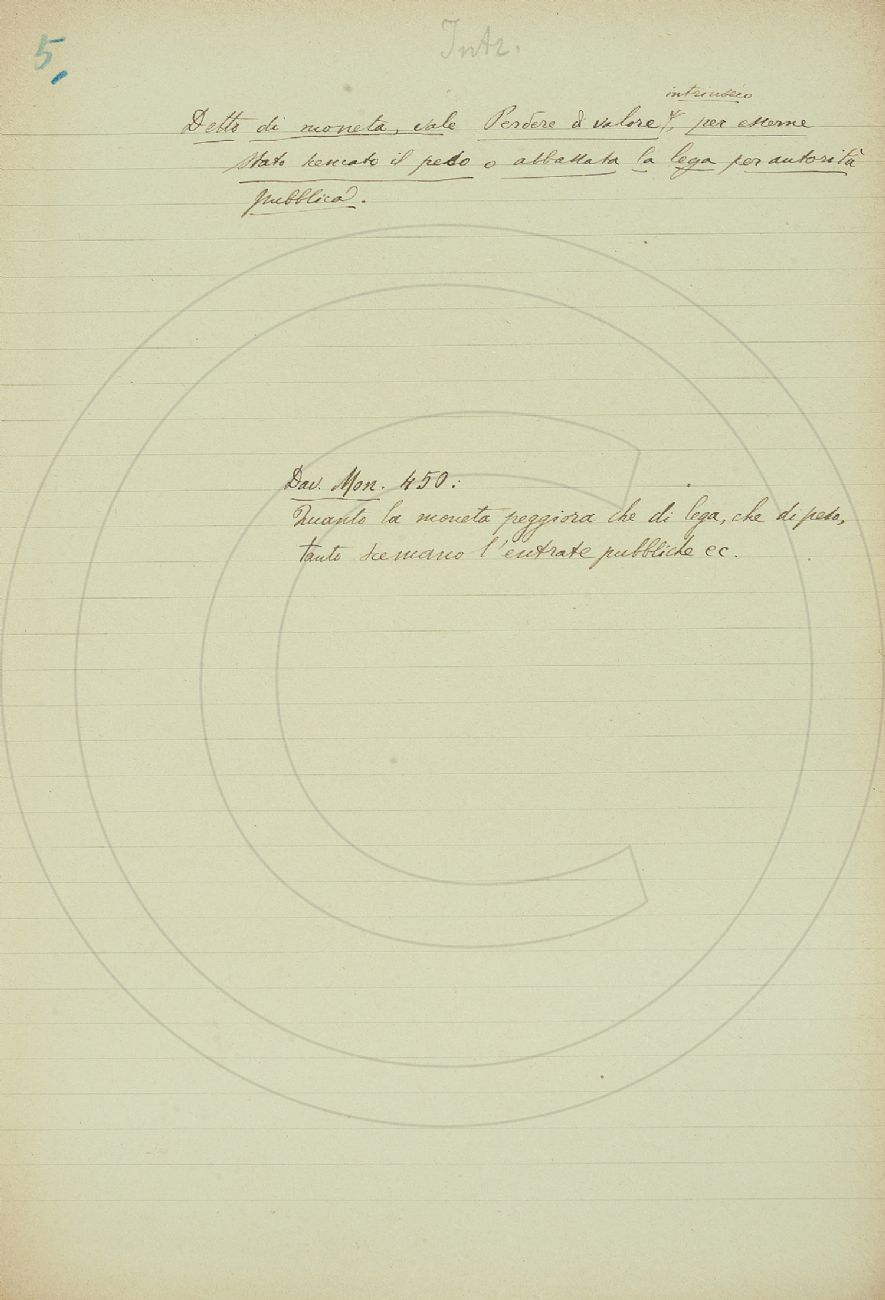 5,
Intr.
intrinseco
Detto di moneta, vale Perdere di valore, per esserne
stato scemato il peso o abbassata la lega per autorità
pubblica.
Dav. Mon. 450:
Quanto la moneta peggiora che di lega, che di peso,
tanto scemano l'entrate pubbliche ec.